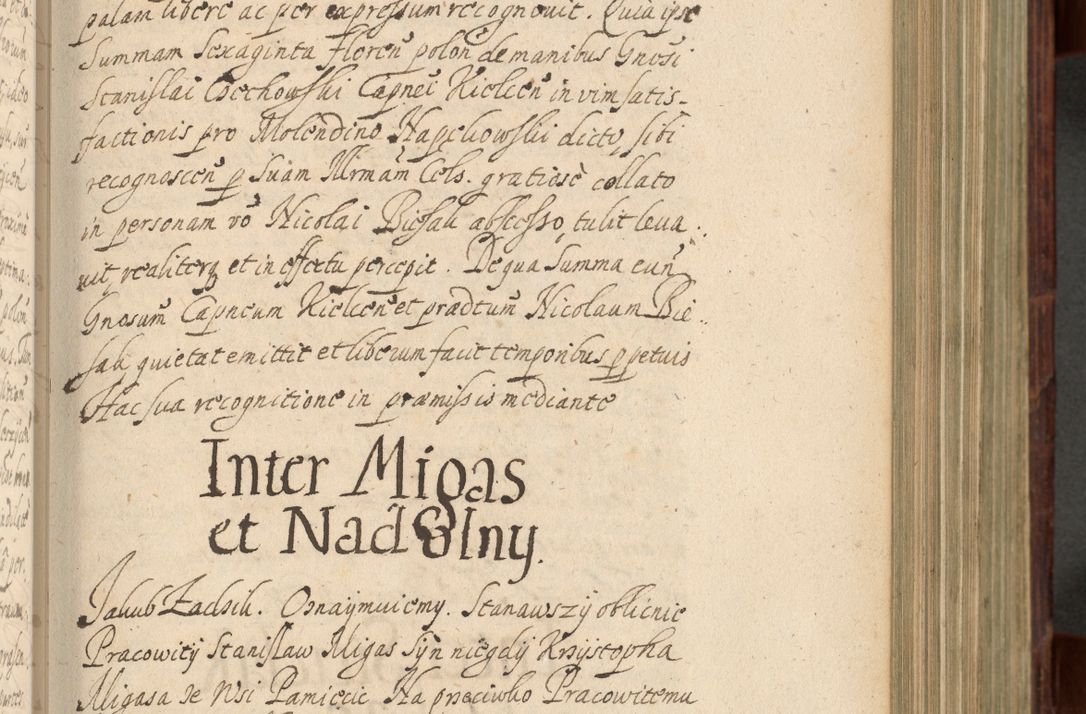 palam libere ac per expressum recognovit. Quia ipse
Summam Sexaginta floren polon de manibus Gnosi
Stanislai Czechowski Capnei Kielcen in vim satis-
factionis pro Molendino Hapckowski dicto, sibi
recognoscen p Suam Illrmam Cels. gratiose collato
in personam vo Nicolai Biesak abscesso, tulit leva
vit, realiterq et in effectu percepit. De qua Summa eun
Gnosum Capneum Kielcen et prædtum Nicolaum Bie
sak quietat emittit et liberum facit temporibus ppetuis
Hac sua recognitione in præmissis mediante
Inter Migas
et Nadolny.
Jakub Zadzik. Oznaymuiemy. Stanawszÿ oblicnie
Pracowitÿ Stanislaw Migas Sÿn niegdÿ Krzÿstopha
Migasa ze Wsi Pamięcic Na przeciwko Pracowitemu